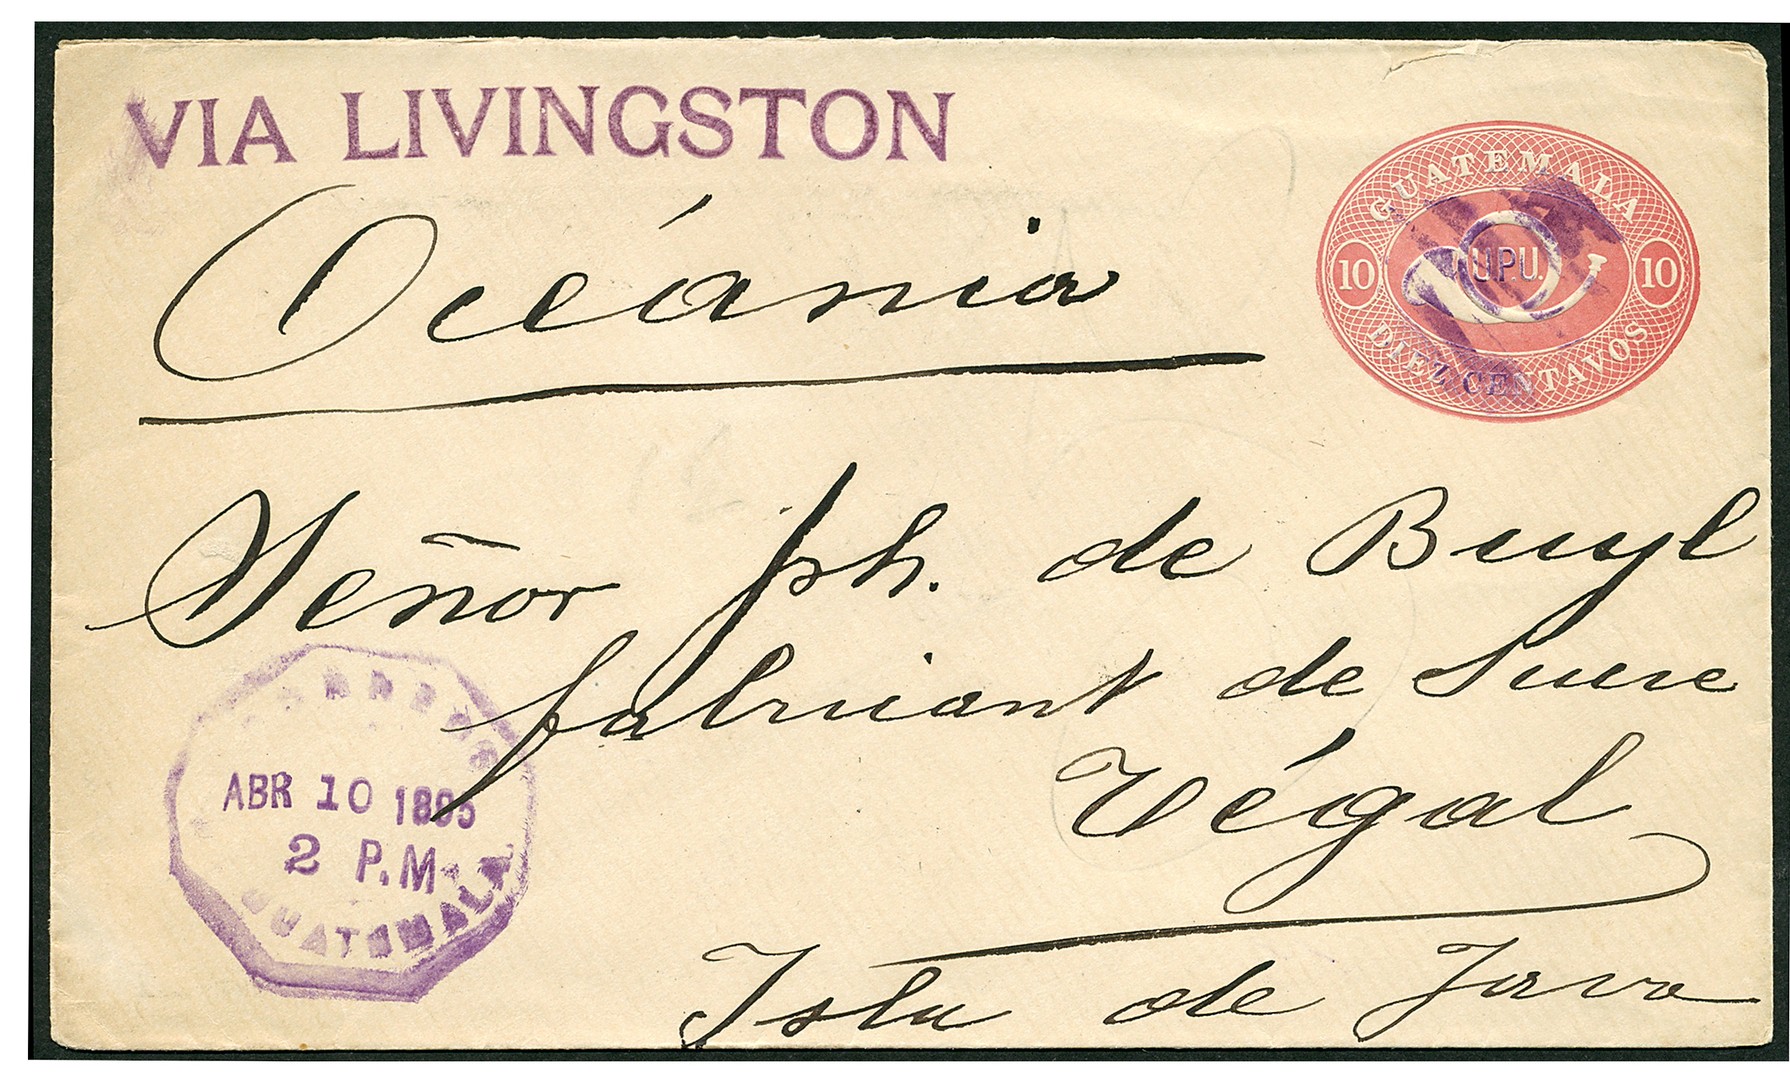 VIA LIVINGSTON
GUATEMALA
10 U.P.U. 10
DIEZ CENTAVOS
Océania
Señor ph. de Buyl
fabricant de Sucre
Tégal
Isla de Java
CORREOS
ABR 10 1895
2 P.M.
GUATEMALA